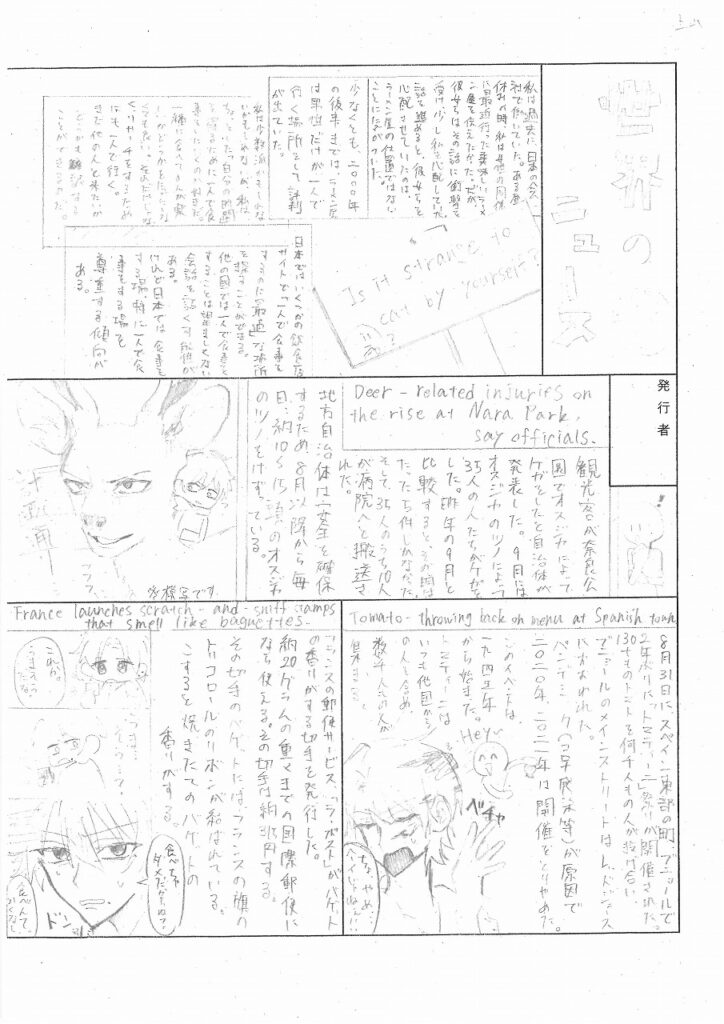 世界の
ニュース
私は過去に日本の会
社で働いていた。ある昼
休みの時、私は女性の同僚
に最近行った美味しいラーメ
ン屋を伝えたかった。だが、
彼女らはその話に衝撃を
受け、少し私を心配していた。
話を進めると、彼女らを
心配させていたのは
ラーメン屋の位置ではない
ことに気がついた。
少なくとも、二〇〇〇年
の後半までは、ラーメン店
は男性だけが一人で
行く場所として評判
が出ていた。
私は少数派かもしれな
一緒に食べる人が楽
くても良い。
はも一人で行く。
まで他の人と来たいが
Is it strange to
eat by yourself?
日本ではいくつかの飲食店
サイトで「一人で食事を
するのに最適」な場所
を探すことができる。
他の国では一人で食事を
することは望ましくない
会話を
ある。
けれど日本では食事を
する場、特に一人で食
事をする場を
尊重する傾向が
ある。
発行者
Deer-related injuries on
the rise at Nara Park,
say officials.
観光客が奈良公
園でオスジカによって
ケガをしたと自治体が
発表した。9月には
オスジカのツノによって
35人の人たちがケガを
した。昨年の9月と
比較すると、その時は
たった七件しかなかった。
そして、35人のうち10人
が病院へと搬送さ
れた。
地方自治体は安全を確保
するため、8月以降から毎
日、約10~15頭のオスジカ
のツノをけずっている。
計画通り
フフフ
模写です
Tomato-throwing back on menu at Spanish town
8月31日に、スペイン東部の町、ブニョールで
2年ぶりに「トマティーニ」祭りが開催された。
130tものトマトを何千人もの人が投げ合い、
ブニョールのメインストリートはレッドジュース
におおわれた。
パンデミック(コロナ感染等)が原因で
二〇二〇年、二〇二一年は開催をとりやめた。
このイベントは、
一九四五年
から始まった。
トマティーニは
いつも他国から
の人も含め、
数千人もの人が
集まる。
Hey
ベチャ
ちょ、やめ…
France launches scratch-and-sniff stamps
that smell like baguettes.
フランスの郵便サービス「ラ・ポスト」がバゲット
の香りがする切手を発行した。
約20グラムの重さまでの国際郵便に
なら使える。その切手は約315円する。
その切手のバゲットには、フランスの旗の
トリコロールのリボンが結ばれている。
こすると、焼きたてのバゲットの
香りがする。
これが。
うまそうだな
うまそう…
食べちゃ
ダメだからね!?
ドン